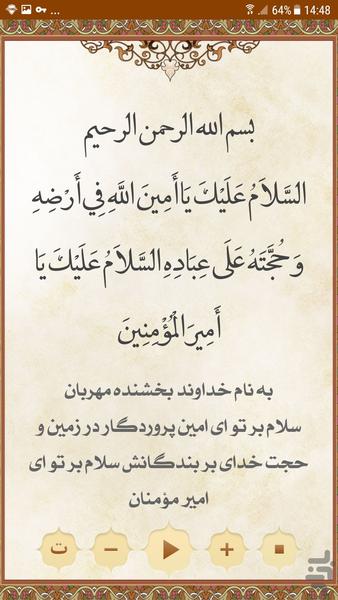 ... 64% 14:48
بسم الله الرحمن الرحیم
السَّلاَمُ عَلَيْكَ يَا أَمِينَ اللَّهِ فِي أَرْضِهِ
وَ حُجَّتَهُ عَلَى عِبَادِهِ السَّلاَمُ عَلَيْكَ يَا
أَمِيرَ الْمُؤْمِنِينَ
به نام خداوند بخشنده مهربان
سلام بر تو ای امین پروردگار در زمین و
حجت خدای بر بندگانش سلام بر تو ای
امیر مؤمنان
ت − +
بازار